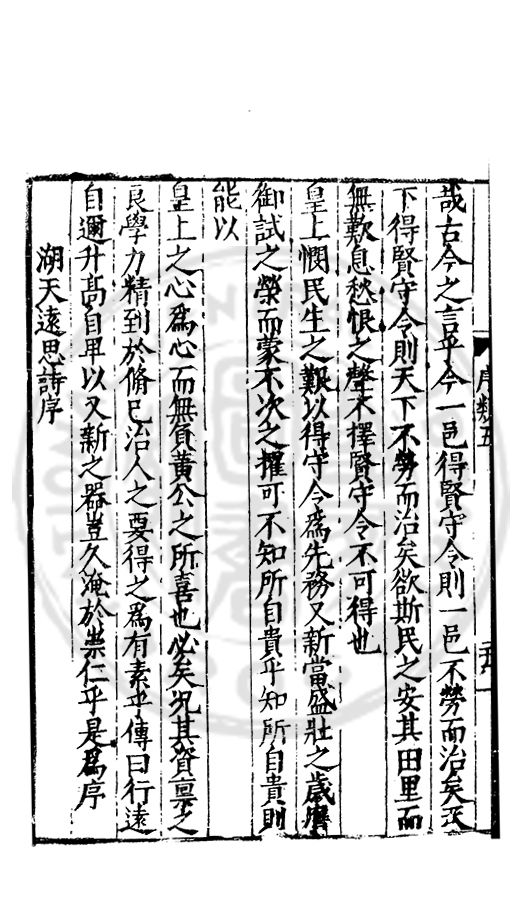 序類五
哉古今之言乎今一邑得賢守令則一邑不勞而治矣天
下得賢守令則天下不勞而治矣欲斯民之安其田里而
無歎息愁恨之聲不擇賢守令不可得也
皇上憫民生之艱以得守令爲先務又新當盛壯之歲膺
御試之榮而蒙不次之擢可不知所自貴乎知所自貴則
能以
皇上之心爲心而無負黃公之所喜也必矣况其資禀之
良學力精到於脩己治人之要得之爲有素乎傳曰行遠
自邇升髙自卑以又新之器豈久淹於崇仁乎是爲序
湖天遠思詩序